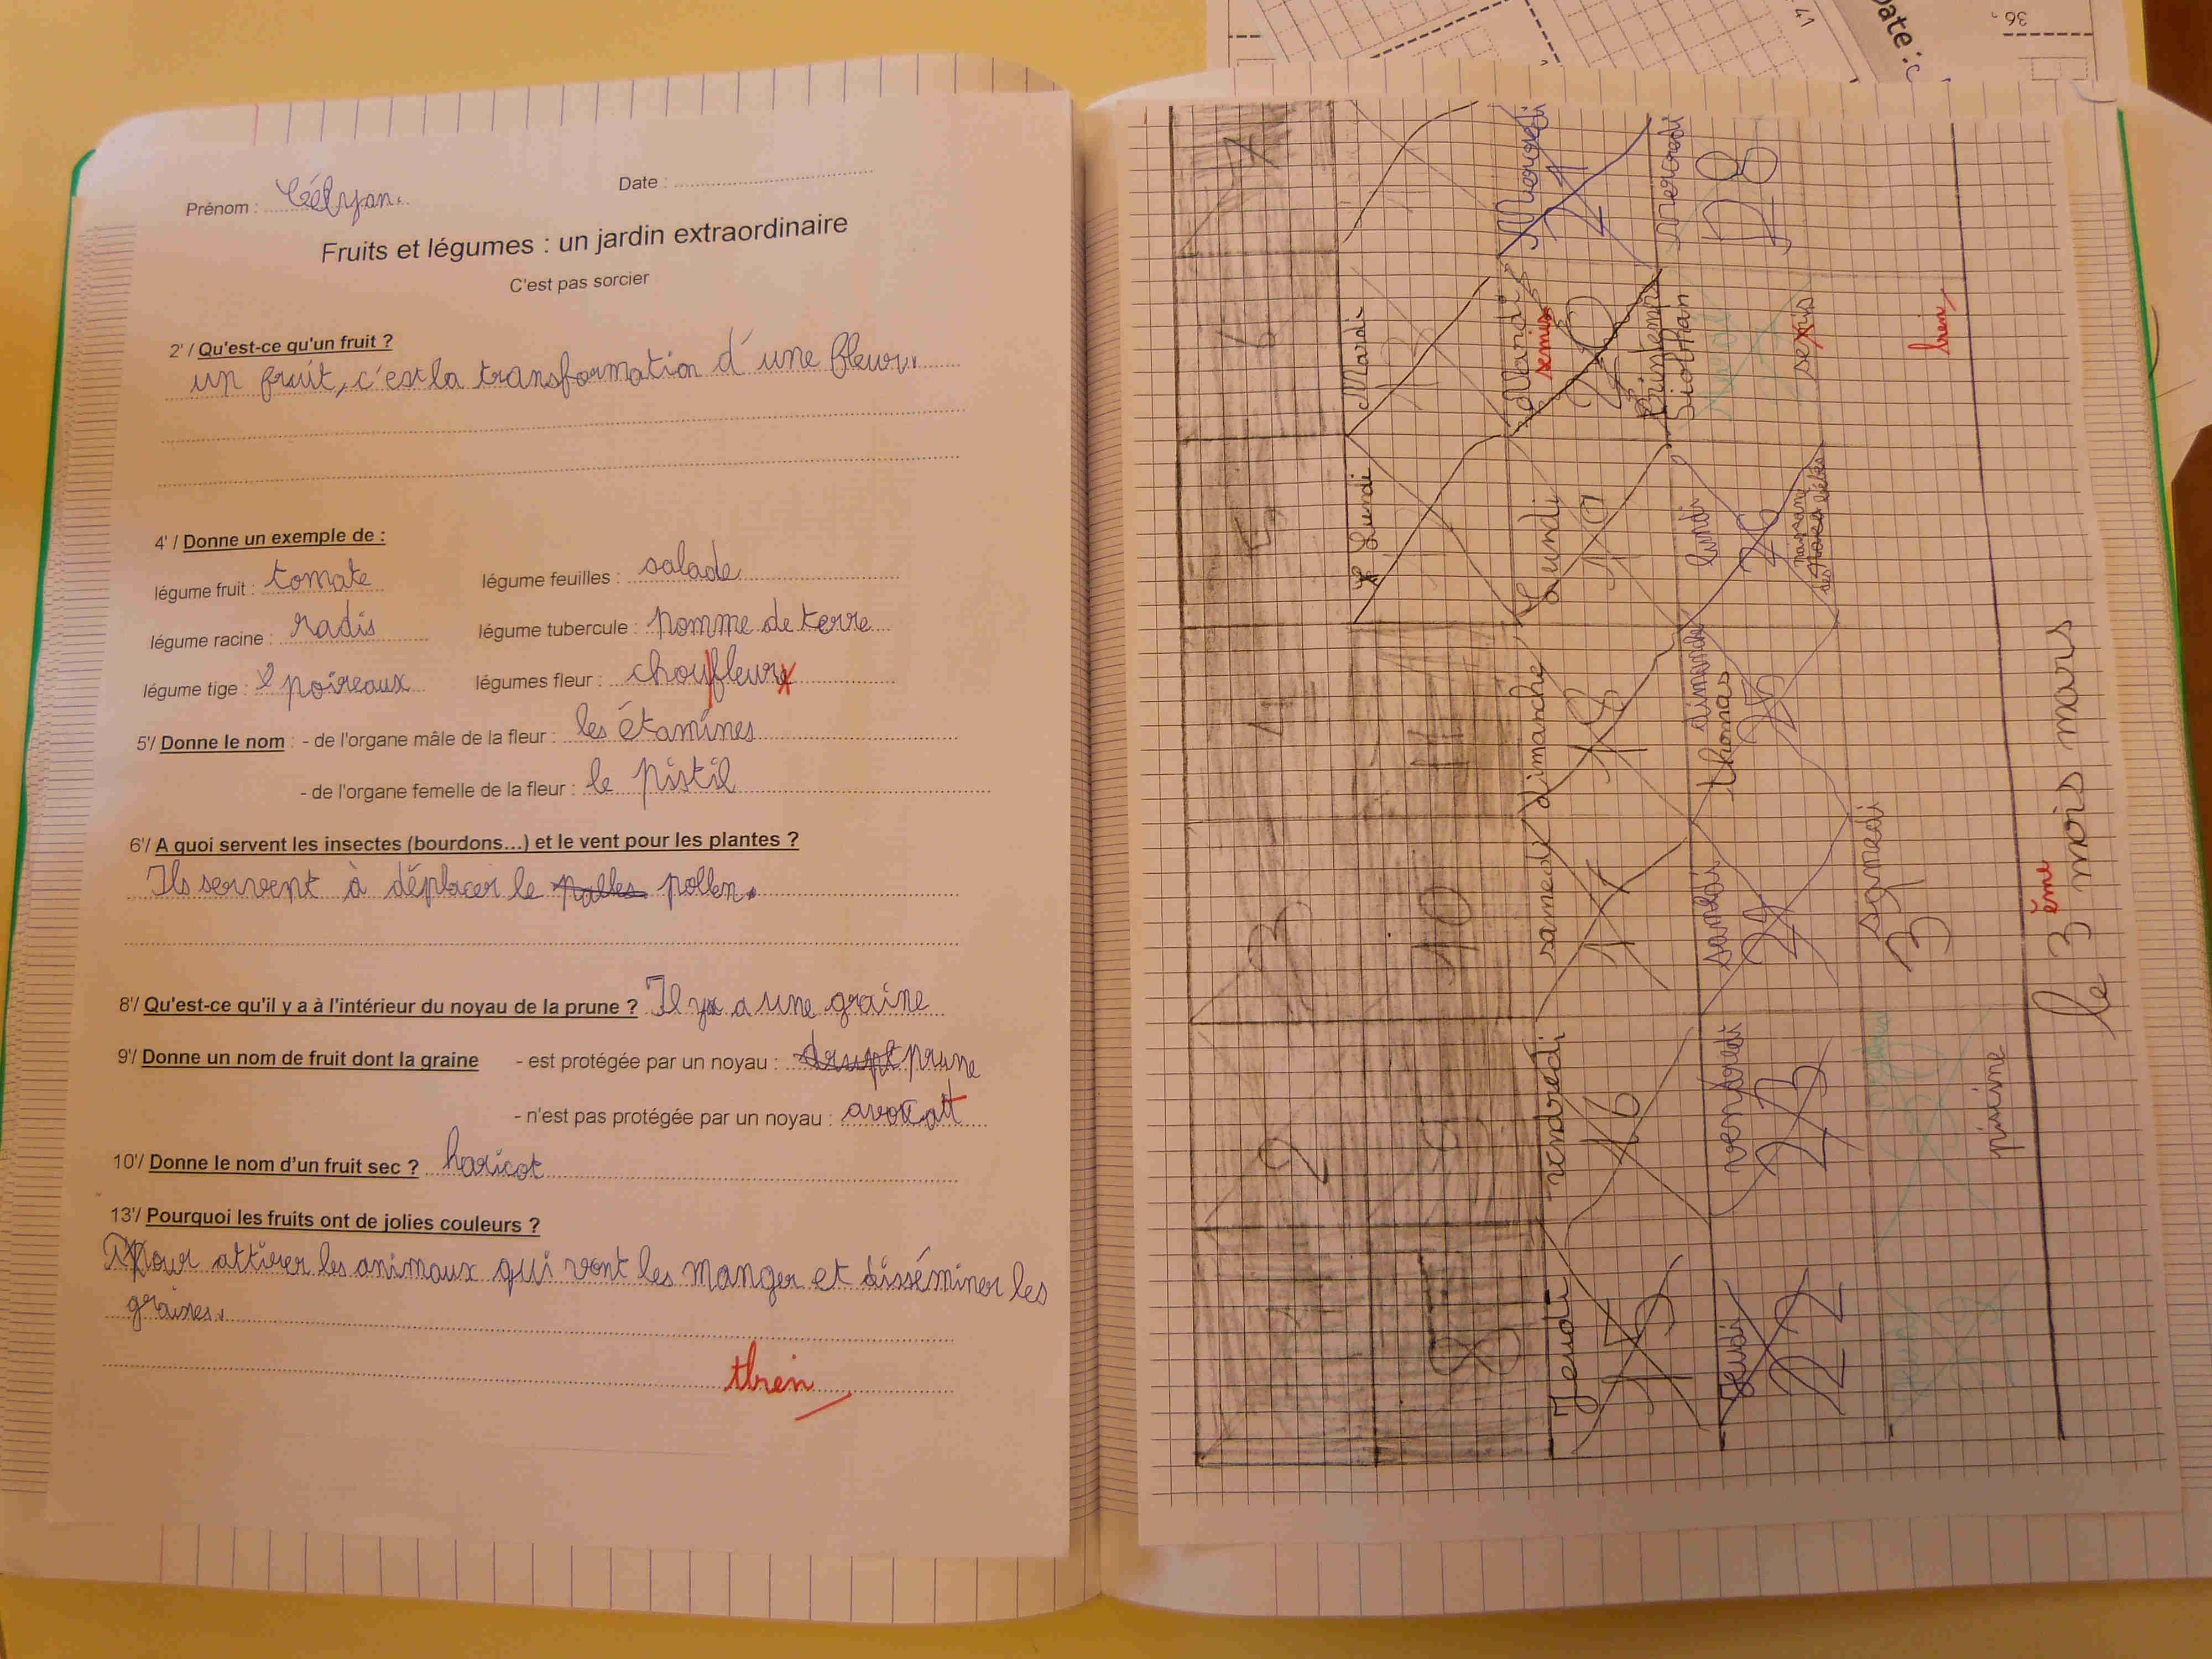 Prénom : Célyan.
Date :
Fruits et légumes : un jardin extraordinaire
C'est pas sorcier
2' / Qu'est-ce qu'un fruit ?
un fruit, c'est la transformation d'une fleur.
4' / Donne un exemple de :
légume fruit : tomate légume feuilles : salade
légume racine : radis légume tubercule : pomme de terre
légume tige : poireaux légumes fleur : chou fleur
5'/ Donne le nom : - de l'organe mâle de la fleur : les étamines
- de l'organe femelle de la fleur : le pistil
6'/ A quoi servent les insectes (bourdons...) et le vent pour les plantes ?
Ils servent à déplacer le pollen.
8'/ Qu'est-ce qu'il y a à l'intérieur du noyau de la prune ? Il y a une graine
9'/ Donne un nom de fruit dont la graine - est protégée par un noyau : prune
- n'est pas protégée par un noyau : avocat
10'/ Donne le nom d'un fruit sec ? haricot
13'/ Pourquoi les fruits ont de jolies couleurs ?
Pour attirer les animaux qui vont les manger et disséminer les
graines.
tbien
le 3ème mois mars
1 2 3 4 5 6 7
Lundi Mardi
8 9 10 11
Jeudi vendredi samedi dimanche Lundi Mardi Mercredi
15 16 17 18 19 20 21
semis
Printemps
Jeudi vendredi samedi dimanche lundi Siobhan mercredi
22 23 24 thomas 26 28
25
samedi
semis
3
piscine
bien
Date :
41
36